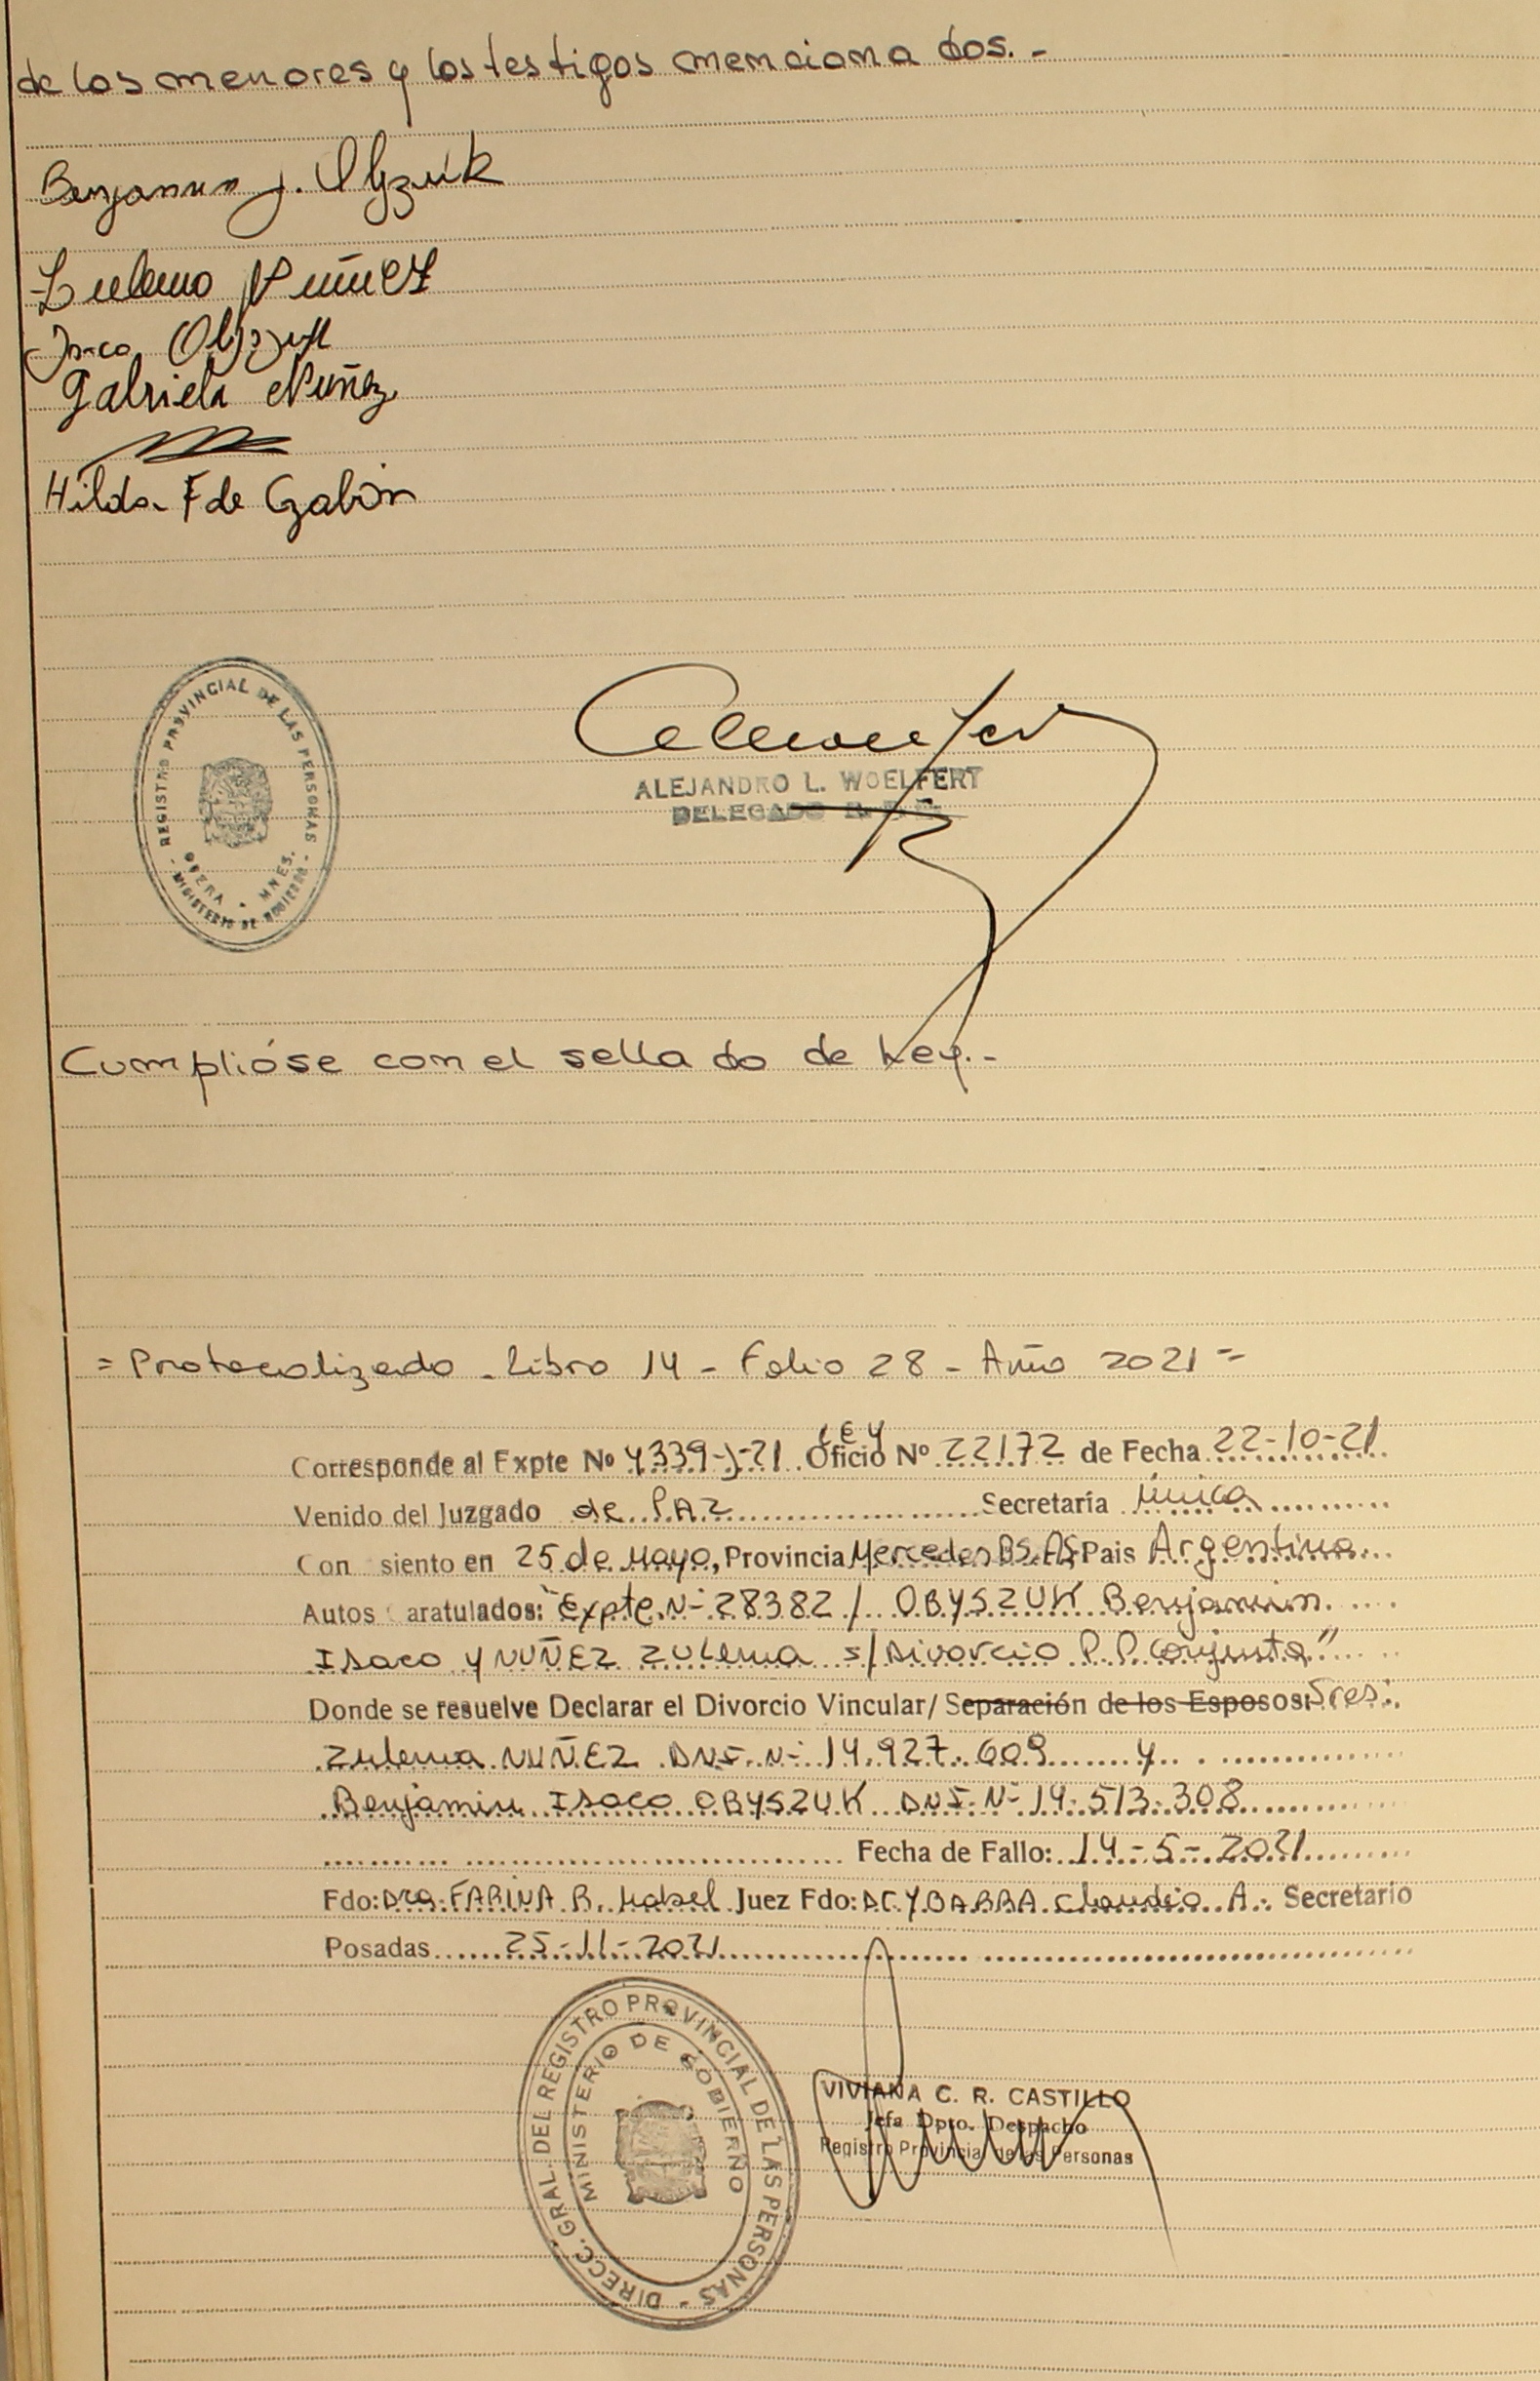 de los menores y los testigos menciona dos. -
Benjamin J. Obyzuk
Zulema Nuñez
Isaco Obyszuk
Gabriela Nuñez
Hilda F de Gabin
REGISTRO PROVINCIAL DE LAS PERSONAS
OBERA - MNES.
MINISTERIO DE GOBIERNO
ALEJANDRO L. WOELFERT
DELEGADO
Cumplióse con el sella do de Ley. -
= Protocolizado - Libro 14 - Folio 28 - Año 2021 =
LEY
Corresponde al Expte Nº 4339-J-21 Oficio Nº 22172 de Fecha 22-10-21
Venido del Juzgado de PAZ Secretaría Única
Con siento en 25 de Mayo, Provincia Mercedes BS.AS, Pais Argentina
Autos aratulados: "Expte. N- 28382 / OBYSZUK Benjamin
Isaco y NUÑEZ ZULema s/Divorcio P.P. Conjunta"
Donde se resuelve Declarar el Divorcio Vincular/ Separación de los Esposos: Sres:
Zulema NUÑEZ DNI. N- 14.927.609 y
Benjamin Isaco OBYSZUK DNI. N- 14.513.308
Fecha de Fallo: 14-5-2021
Fdo: Dra. FARINA R. Mabel Juez Fdo: Dr YBARRA Claudio A. Secretario
Posadas 25-11-2021
DIRECC. GRAL. DEL REGISTRO PROVINCIAL DE LAS PERSONAS
MINISTERIO DE GOBIERNO
VIVIANA C. R. CASTILLO
Jefa Dpto. Despacho
Registro Provincial de las Personas